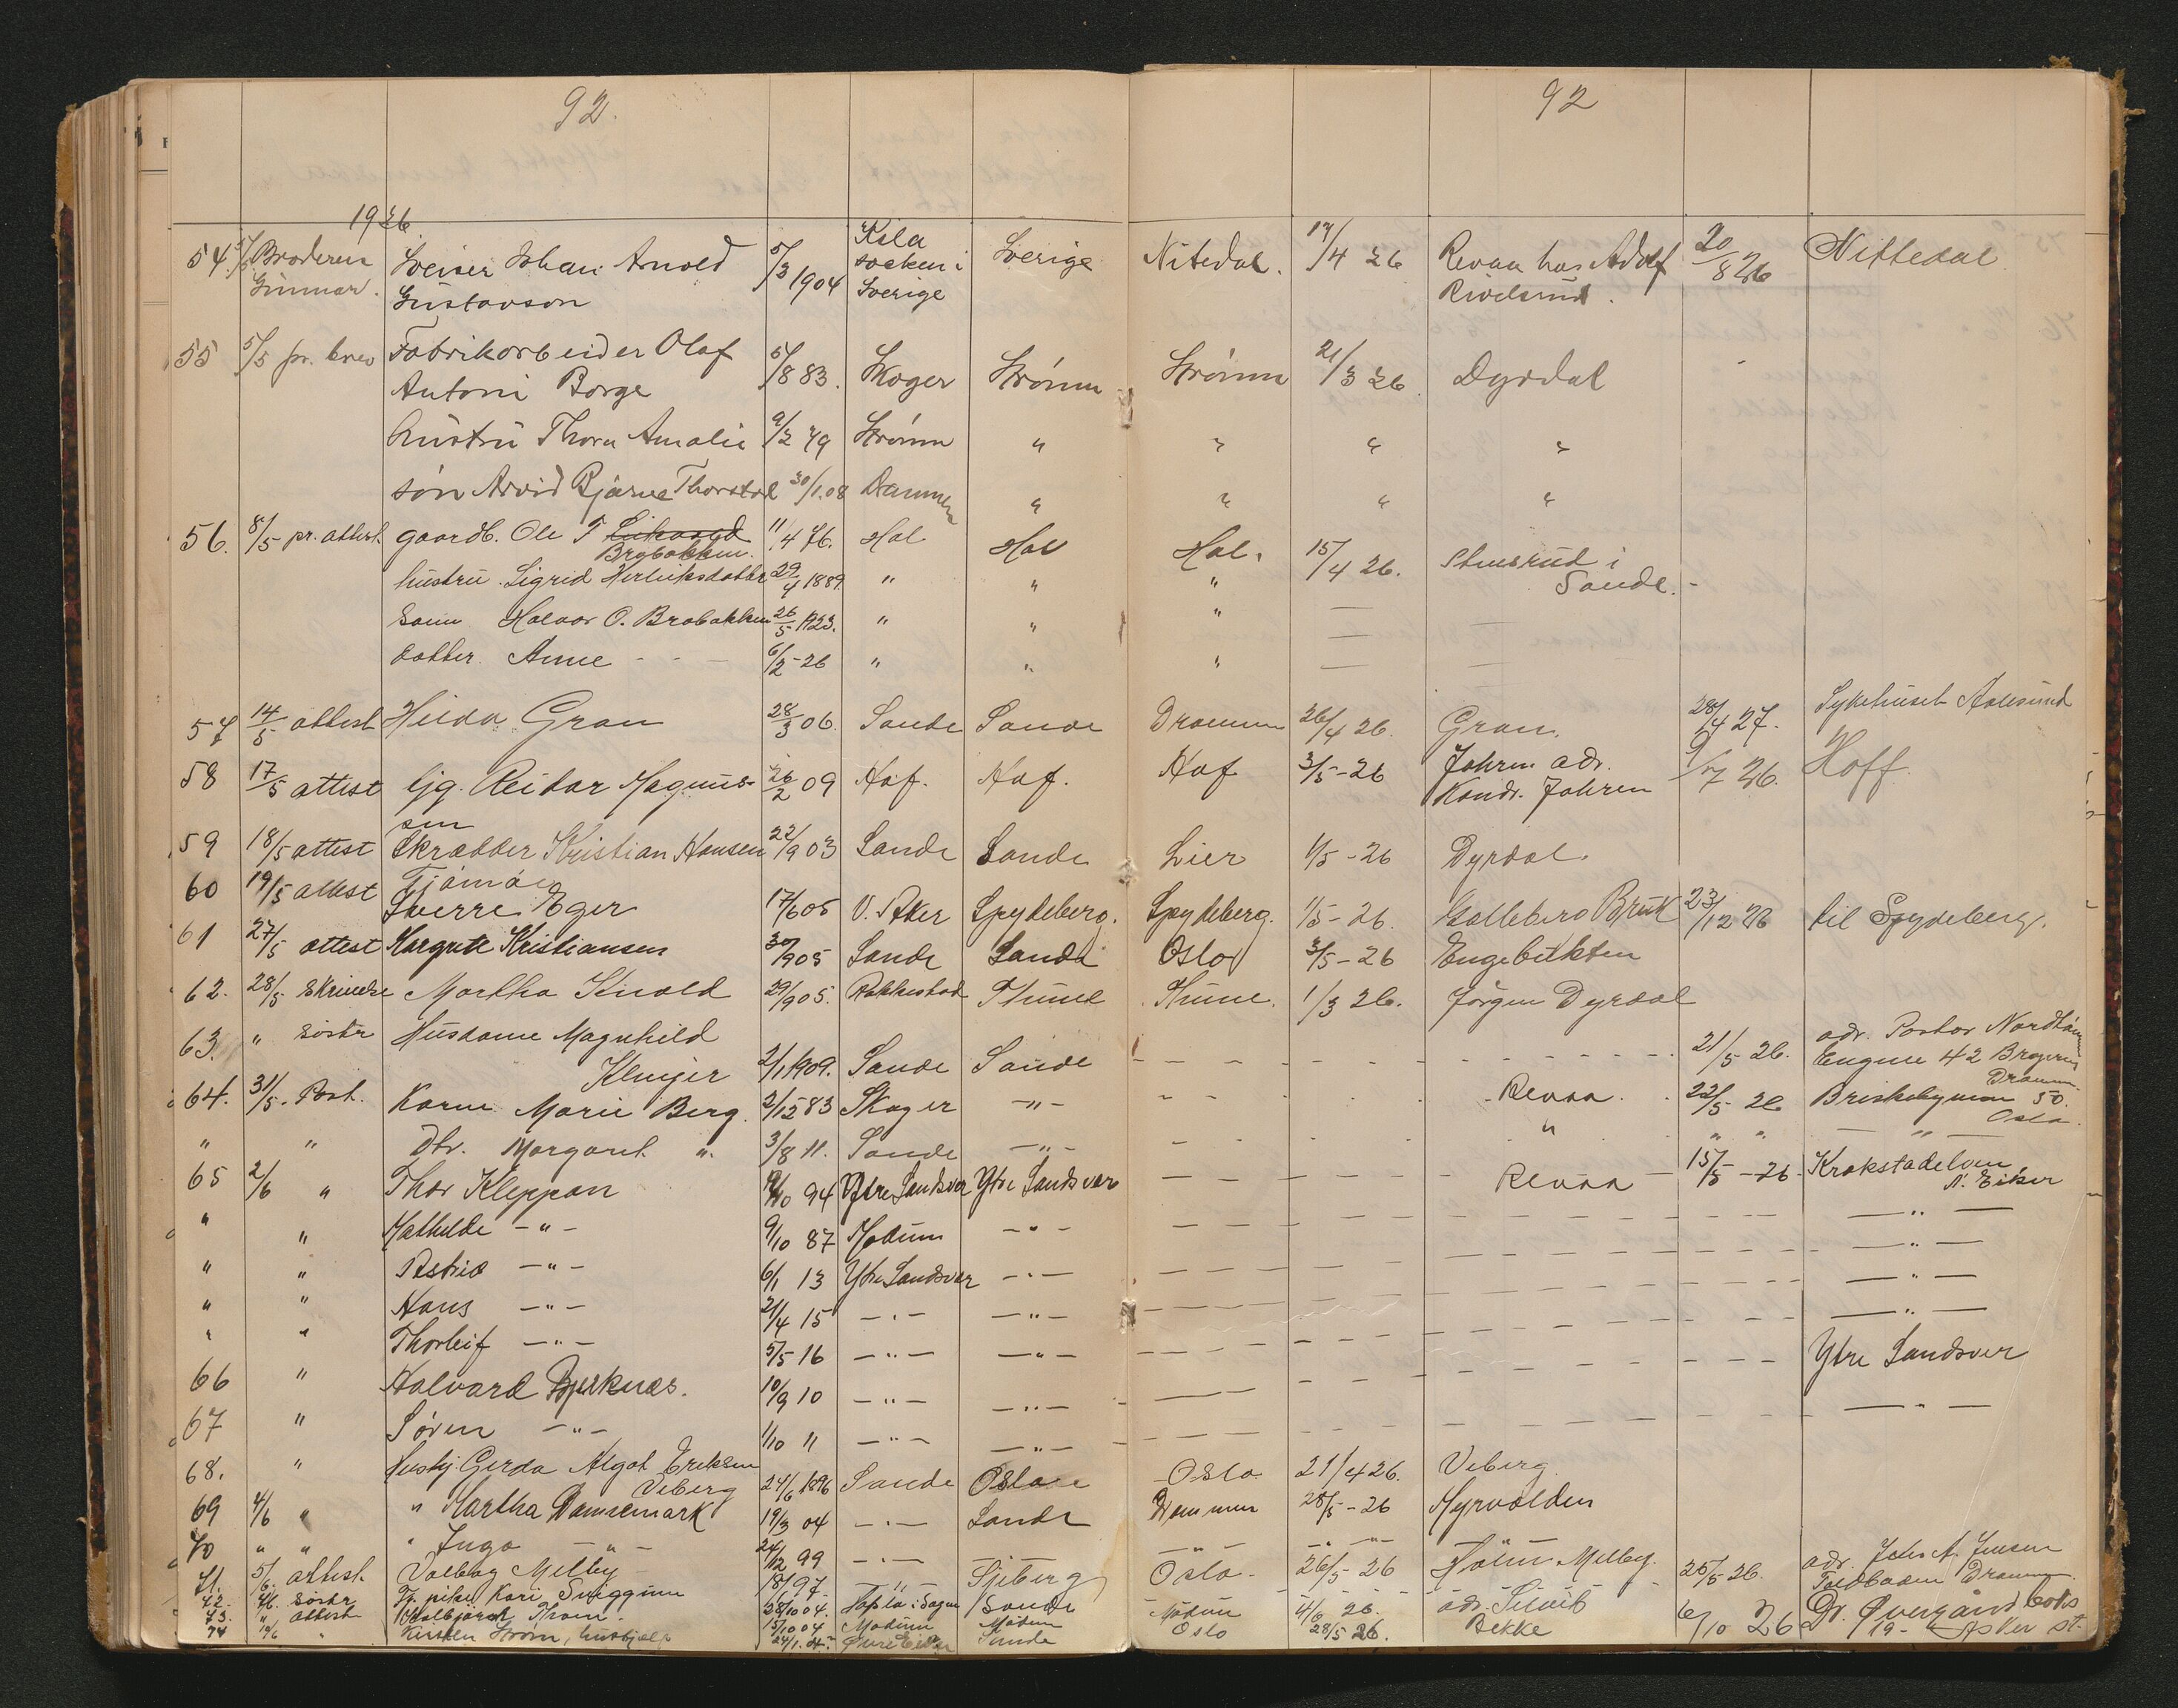 92.
92
1926
54. 5/5 Broderen Sveiser Johan Arnold 5/3 1904 Kila socken i Sverige Nitedal. 17/4 26 Revaa hos Adolf 20/8 26 Nittedal
Gunnar. Gustavson Sverige
55 5/5 pr. brev Fabrikarbeider Olaf 5/8 83. Skoger Strömm Strömm 21/3 26 Dyrdal -
Antoni Borge
Hustru Thora Amalie 9/2 79 Strömm " " " "
sön Arvid Bjarne Thorstad 30/1.08 Dramm " " " "
56. 8/5 pr. attest gaardb. Ole T 11/4 76. Hol Hol Hol. 15/4 26. i
Brobakken. Sande. -
hustru. Sigrid 29/4 1889. " " "
Sönn Halvor O. Brobakken 26/5 1923. " " "
datter. Anne - - - 6/2-26 " " "
57 14/5 attest Hilda Gran 28/3 06. Sande Sande Drammen 26/4 26. Gran. 28/4 27. Sykehuset Aalesund
58 17/5 attest tjg. Reidar Magnus- 26/2 09 Hof. Hof. Hof 3/5-26 Jahren adr. 9/7 26. Hoff
sen Kondr. Jahren
59 18/5 attest Skrædder Kristian Hansen 22/9 03 Sande Sande Lier 1/5-26 Dyrdal.
60 19/5 attest Sverre Eger 17/6 05 V. Aker Spydeberg. Spydeberg. 1/5-26. Bruk 23/12 26 til Spydeberg.
61 27/5 attest Margrete Kristiansen 30/9 05 Sande Sande Oslo 3/5-26 Engebukten
62. 28/5 Skrivelse Martha Knold 29/9 05. Rakkestad 1/3 26. Jörgen Dyrdal
63. " söster Husdame Magnhild 21/5 26. adr. Pastor
Klinger 2/1 1909. Sande Sande Engene 42 Brageren
Dramm.
64. 31/5. Post. Karen Marie Berg. 2/12 83 Skoger -"- Revaa. 22/5 26 Briskebyveien 50.
Oslo.
" " Dtr. Margaret ". 3/8 11. Sande -"- " " " - " -
65 2/6 " Thor Kleppan 94 Ytre Sandsvær Ytre Sandsvær Revaa 15/5-26. Krokstadelven
N. Eiker
" " Mathilde -"- 9/10 87 Modum -"- - " -
" " Astrid -"- 6/1 13 Ytre Sandsvær -"- - " -
" " Hans -"- 2/4 15 -"- -"- - " -
" " Thorleif -"- 5/5 16 -"- -"- - " -
66 " Halvard Bjerknes. 10/9 10 -"- -"- Ytre Sandsver
67 " Sören -"- 1/10 11 -"- -"- - " -
68. " Hushj. Gerda Algot Eriksen 24/6 1896 Sande Oslo Oslo 21/4 26. Veberg.
Veberg
69 4/6 " " Martha Damsemark 19/3 04 -"- Sande Drammen 28/5-26 Myrvolden
70 " " " Inga -"- 24/12 99 -"- -"- -"- -"- -"-
71. 5/6. attest Valborg Melby 97 Oslo 26/5 26 Melby. 25/5 26. adr. Jensen
72. söster Tj. pike Kari 04. Sande Dramm.
73. " attest 15/10 04 Modum Modum Modum 4/6 26. adr.
74 " Kirsten Ström, hushjælp 24/1. Sande Oslo 28/5 26. Bekke 6/10 26 Dr.